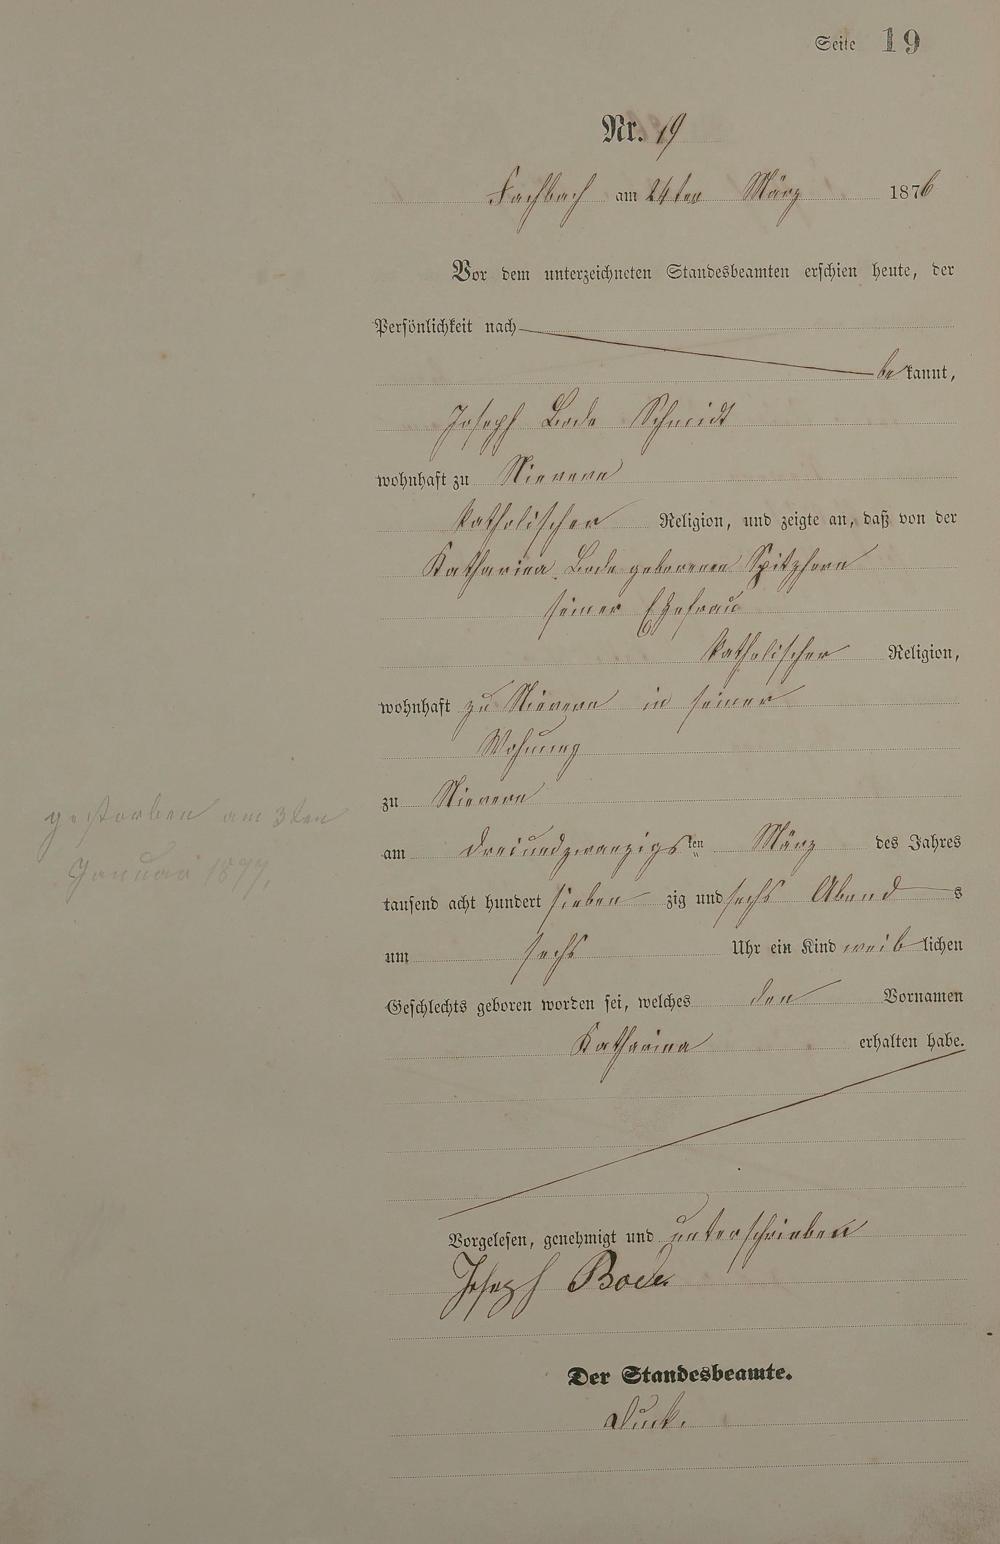 Seite 19
Nr. 19
Fachbach am 24ten März 1876
Vor dem unterzeichneten Standesbeamten erschien heute, der
Persönlichkeit nach
bekannt,
Joseph Bode Schmidt
wohnhaft zu Nievern
katholischer Religion, und zeigte an, daß von der
Katharina Bode geborenen Spitzhorn
seiner Ehefrau
katholischer Religion,
wohnhaft zu Nievern in seiner
Wohnung
zu Nievern
gestorben am 3ten
am dreiundzwanzigsten März des Jahres
Januar 1877,
tausend acht hundert siebenzig und sechs Abends
um sechs Uhr ein Kind weiblichen
Geschlechts geboren worden sei, welches den Vornamen
Katharina erhalten habe.
Vorgelesen, genehmigt und unterschrieben
Joseph Bode
Der Standesbeamte.